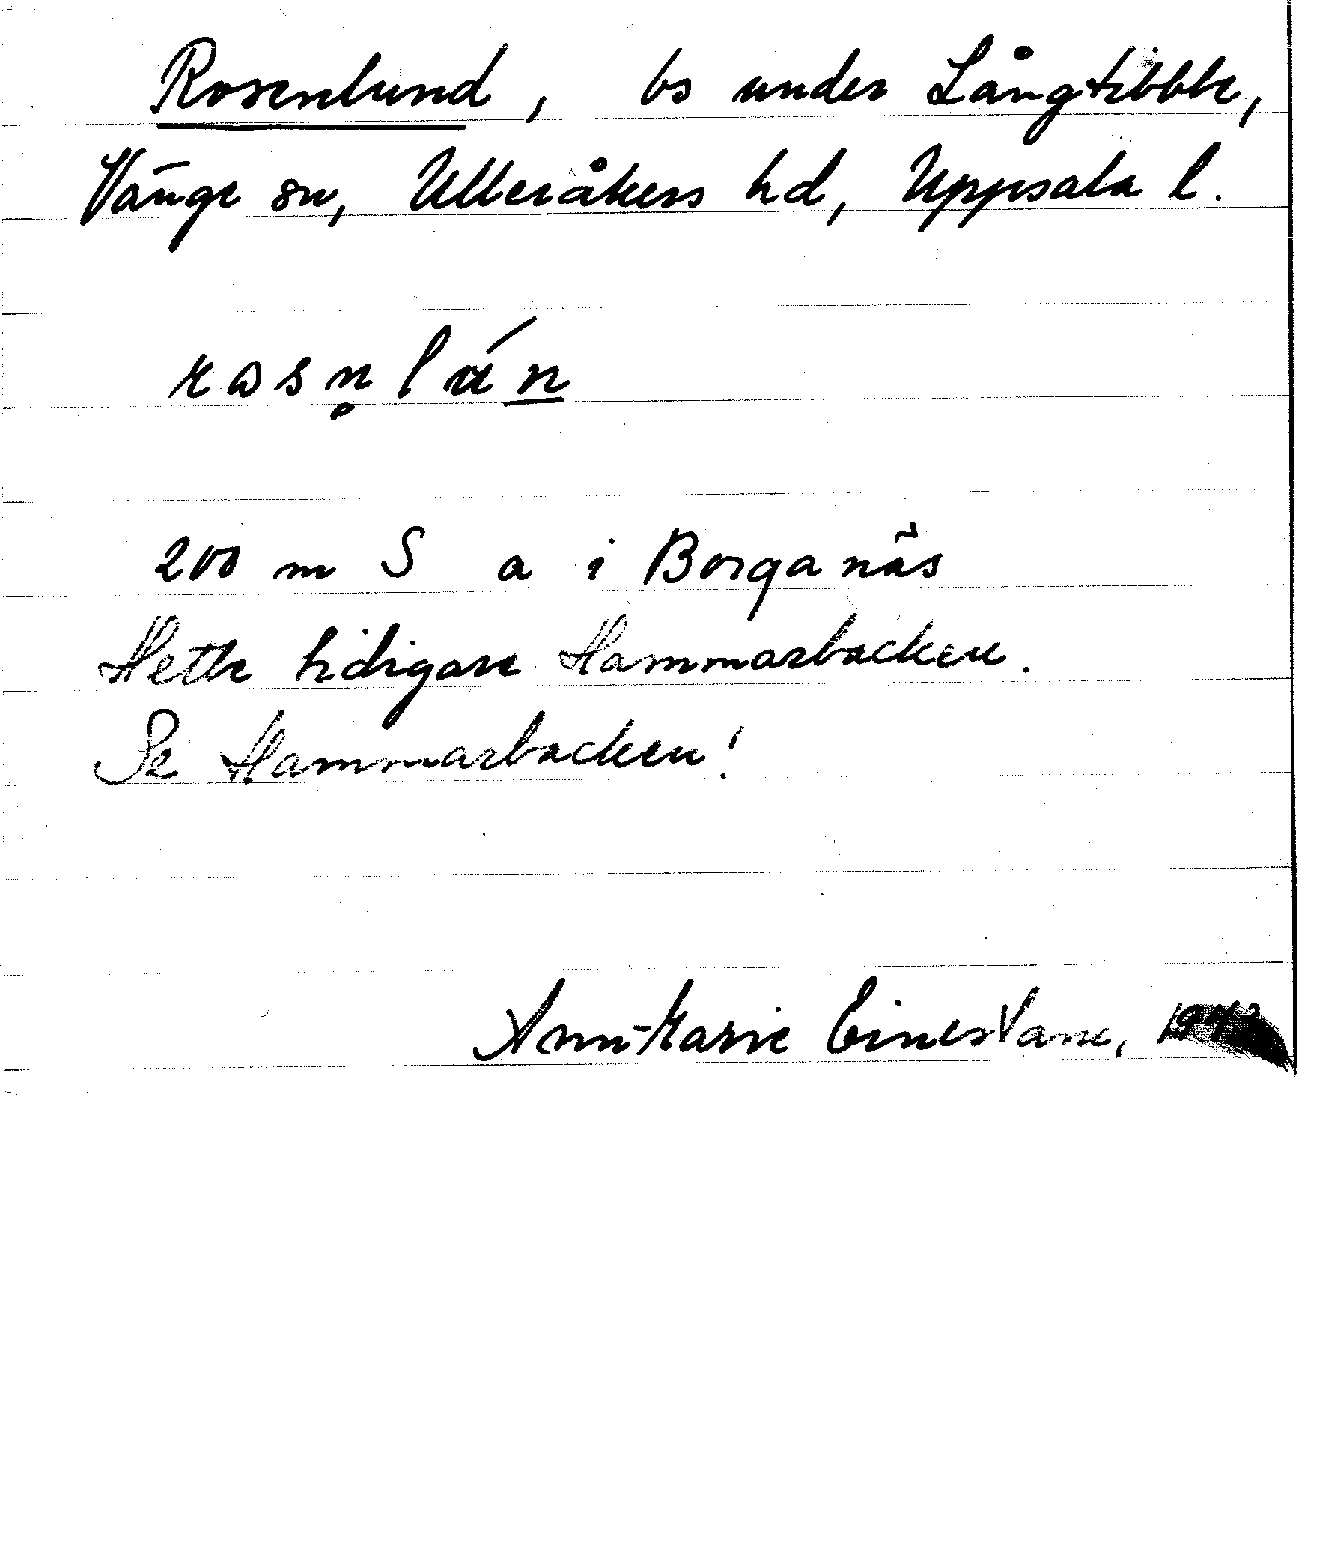 Rosenlund, bs under Långtibble,
Vänge sn, Ulleråkers hd, Uppsala l.
rosn̥lún̲
200 m S a i Borganäs
Hette tidigare Hammarbacken.
Se Hammarbacken!
Ann-Marie